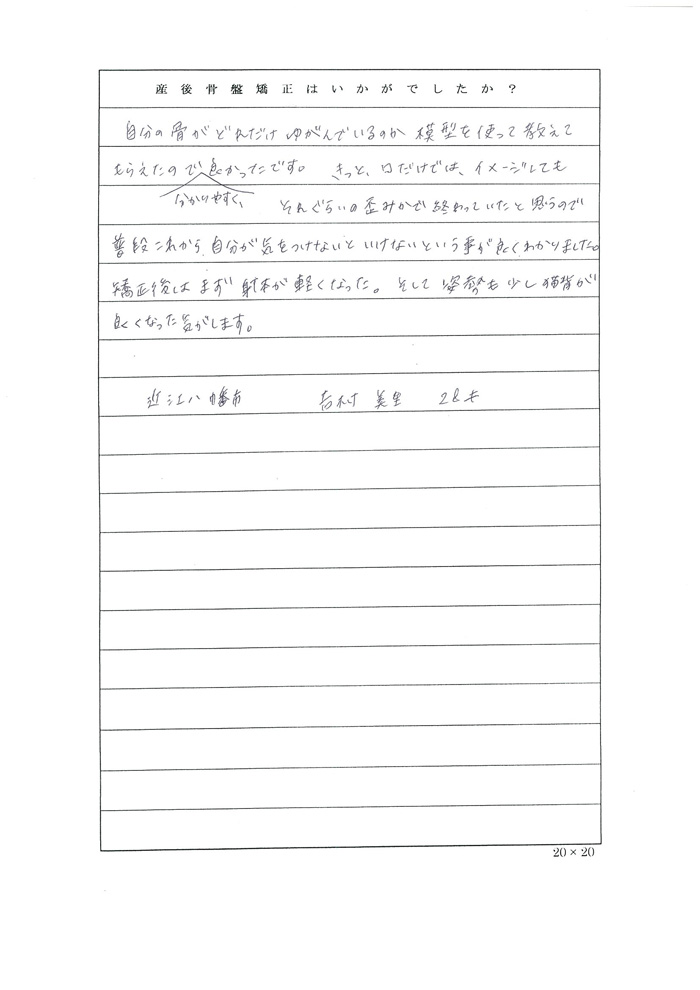 産後骨盤矯正はいかがでしたか？
自分の骨がどれだけゆがんでいるのか 模型を使って教えて
もらえたので良かったです。 きっと、口だけでは、イメージしても
分かりやすく、
それぐらいの歪みかで終わっていたと思うので
普段これから自分が気をつけないといけないという事が良くわかりました。
矯正後はまず身体が軽くなった。そして姿勢も少し猫背が
良くなった気がします。
近江八幡市 吉村 美里 28才
20×20